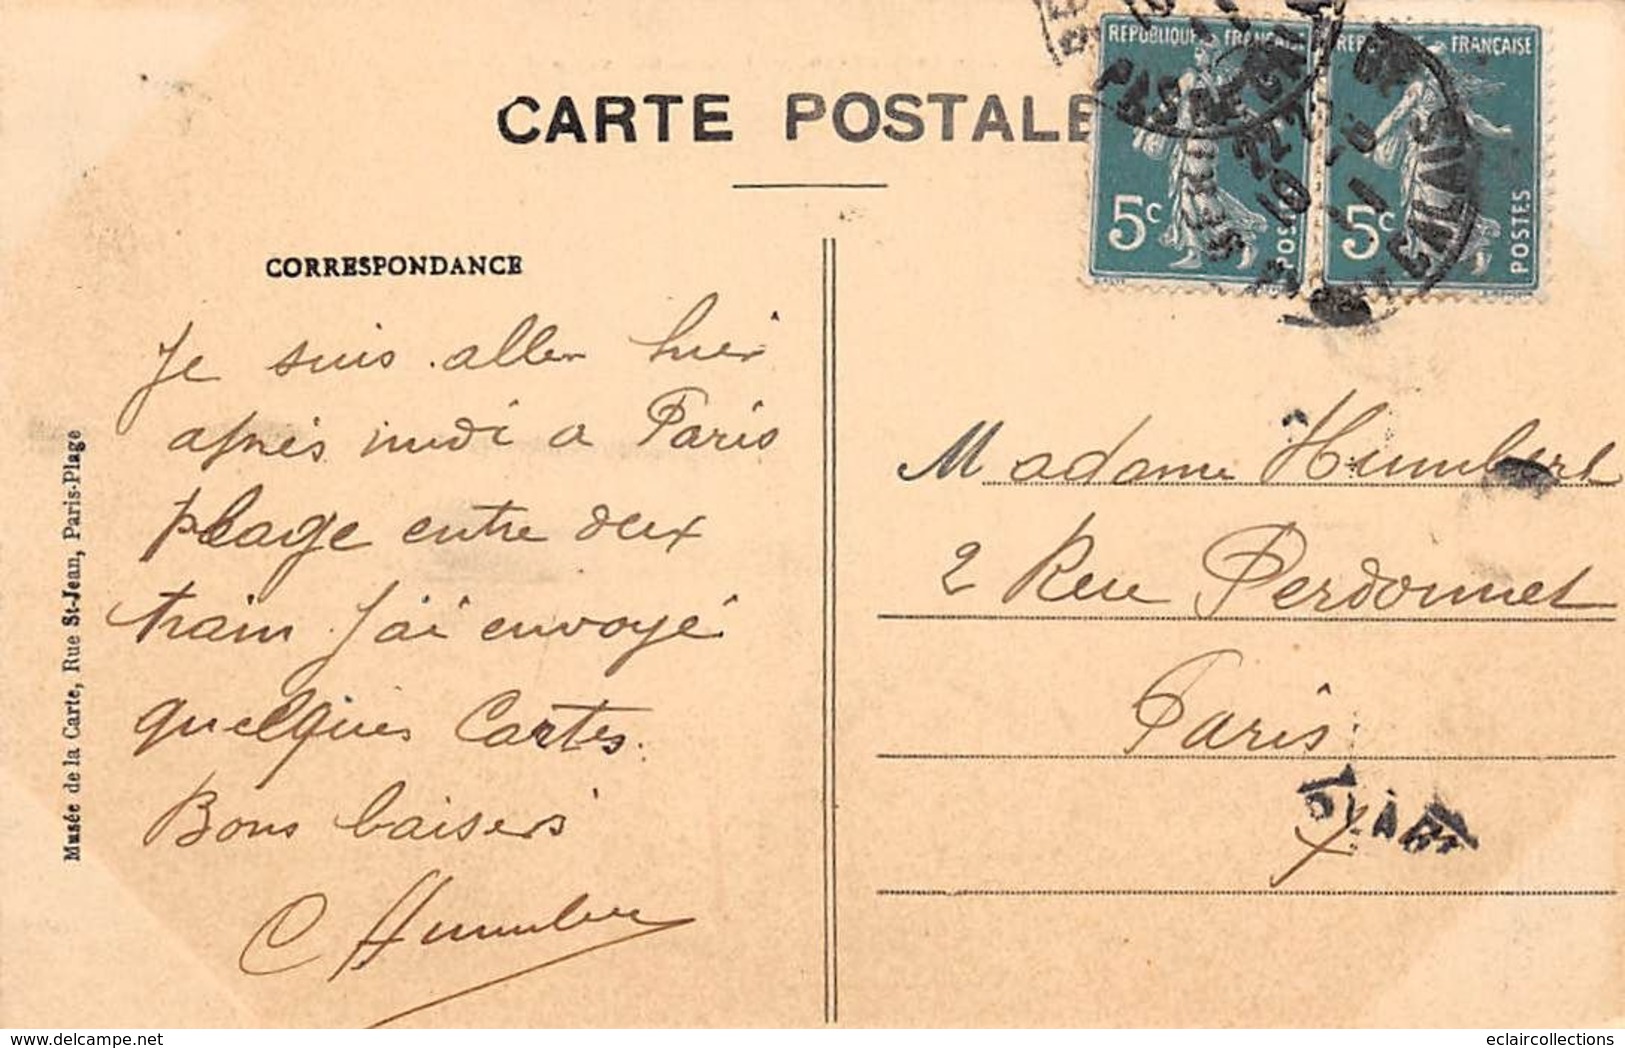 CARTE POSTALE
REPUBLIQUE FRANÇAISE
5c
POSTES
FRANÇAISE
5c
POSTES
CORRESPONDANCE
Je suis aller hier
après midi a Paris
plage entre deux
train. J'ai envoyé
quelques Cartes.
Bons baisers
C Humbert
Madame Humbert
2 Rue Perdonnet
Paris
Musée de la Carte, Rue St-Jean, Paris-Plage
eclaircollections